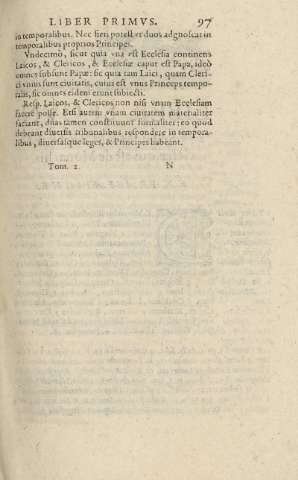 LIBER PRIMVS. 97
in temporalibus. Nec fieri potest vt duos adgnoscat in
temporalibus proprios Principes.
Vndecimò, sicut quia vna est Ecclesia continens
Laicos, & Clericos, & Ecclesiæ caput est Papa, ideò
omnes subsunt Papæ: sic quia tam Laici, quam Cleri-
ci vnius sunt ciuitatis, cuius est vnus Princeps tempo-
ralis, sic omnes eidem erunt subiecti.
Resp. Laicos, & Clericos non nisi vnam Ecclesiam
facere posse. Etsi autem vnam ciuitatem materialiter
faciant, duas tamen constituunt formaliter: eo quod
debeant diuersis tribunalibus respondere in tempora-
libus, diuersasque leges, & Principes habeant.
Tom. 2. N